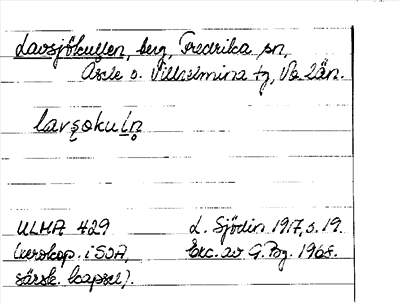 Lavsjökullen, berg, Fredrika sn,
Åsele o. Vilhelmina tg, Vb. län.
lavșokuln̥
ULMA 429 L. Sjödin 1917, s. 19.
(verskop. i SOA, Exc. av G. Bg. 1968.
särsk. kapsel).